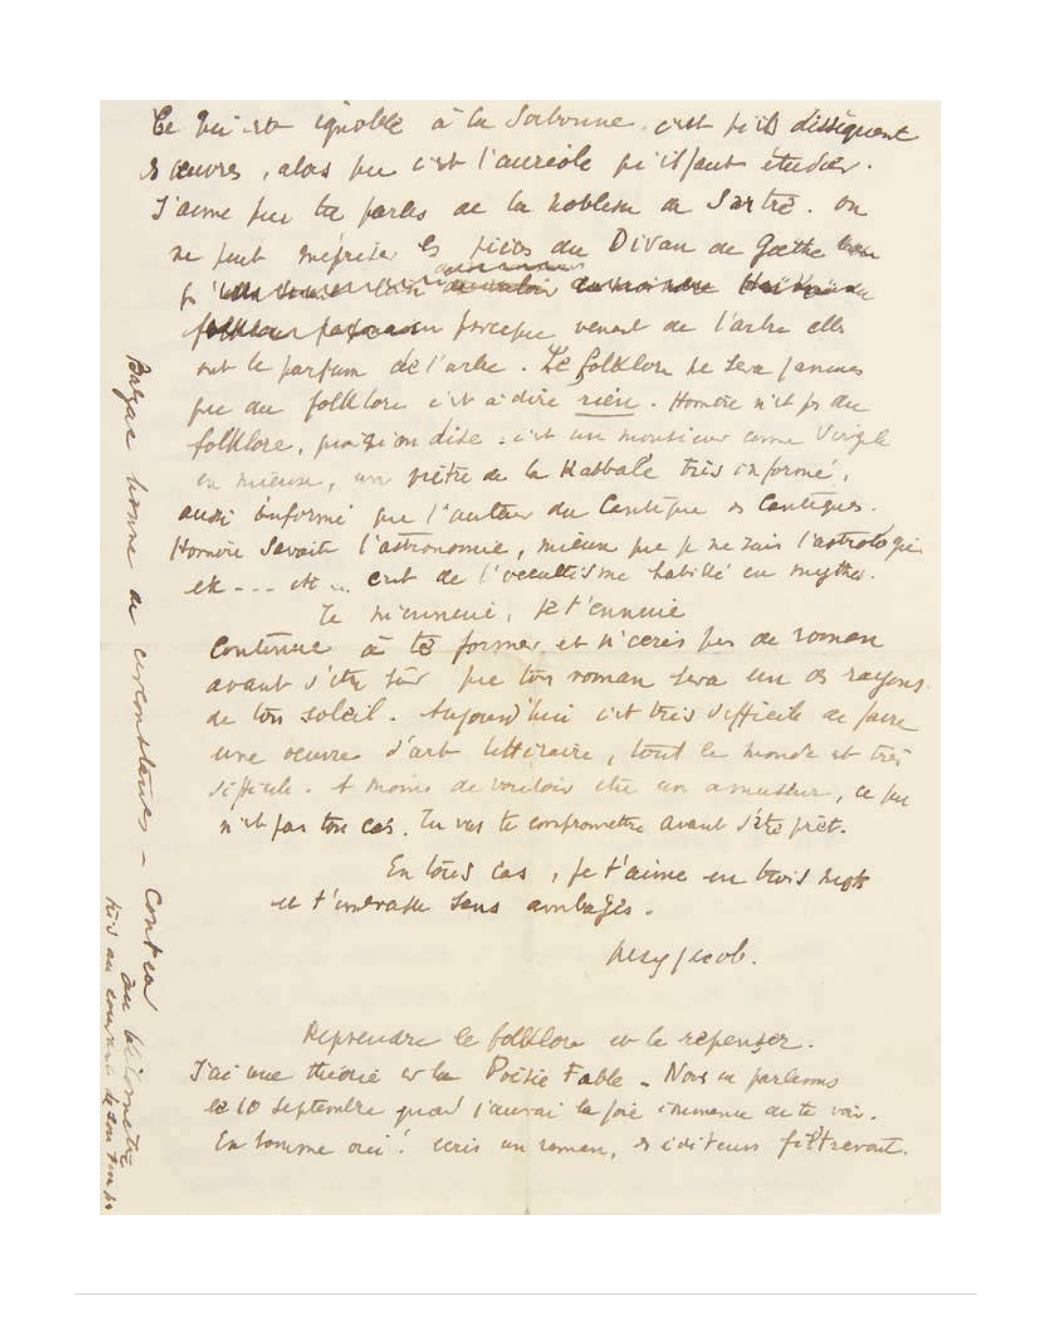 Ce qui est ignoble à la Sorbonne c'est qu'ils dissèquent
les œuvres, alors que c'est l'auréole qu'il faut étudier.
J'aime que tu parles de la noblesse de Sartre. On
ne peut mépriser les pièces du Divan de Gœthe
parceque venant de l'arbre elles
ont le parfum de l'arbre. Le folklore ne sera jamais
que du folklore c'est à dire rien. Homère n'est pas du
folklore, quoiqu'on dise : c'est un monsieur comme Virgile
en mieux, un prêtre de la Kabbale très informé,
aussi informé que l'auteur du Cantique des Cantiques.
Homère savait l'astronomie, mieux que je ne sais l'astrologie
etc --- etc .. c'est de l'occultisme habillé en mythes.
Je m'ennuie, je t'ennuie
Continue à te former et n'écris pas de roman
avant d'être sûr que ton roman sera un des rayons
de ton soleil. Aujourd'hui c'est très difficile de faire
une œuvre d'art littéraire, tout le monde est très
difficile. A moins de vouloir être un amuseur, ce qui
n'est pas ton cas. Tu vas te compromettre avant d'être prêt.
En tous cas, je t'aime en trois mots
et t'embrasse sans ambages.
Max Jacob.
Reprendre le folklore et le repenser.
J'ai une théorie sur la Poésie Fable - Nous en parlerons
le 10 septembre quand j'aurai la joie immense de te voir.
En somme oui! écris un roman, les éditeurs filtreront.
Balzac homme de circonstances -
au
très au courant de son temps